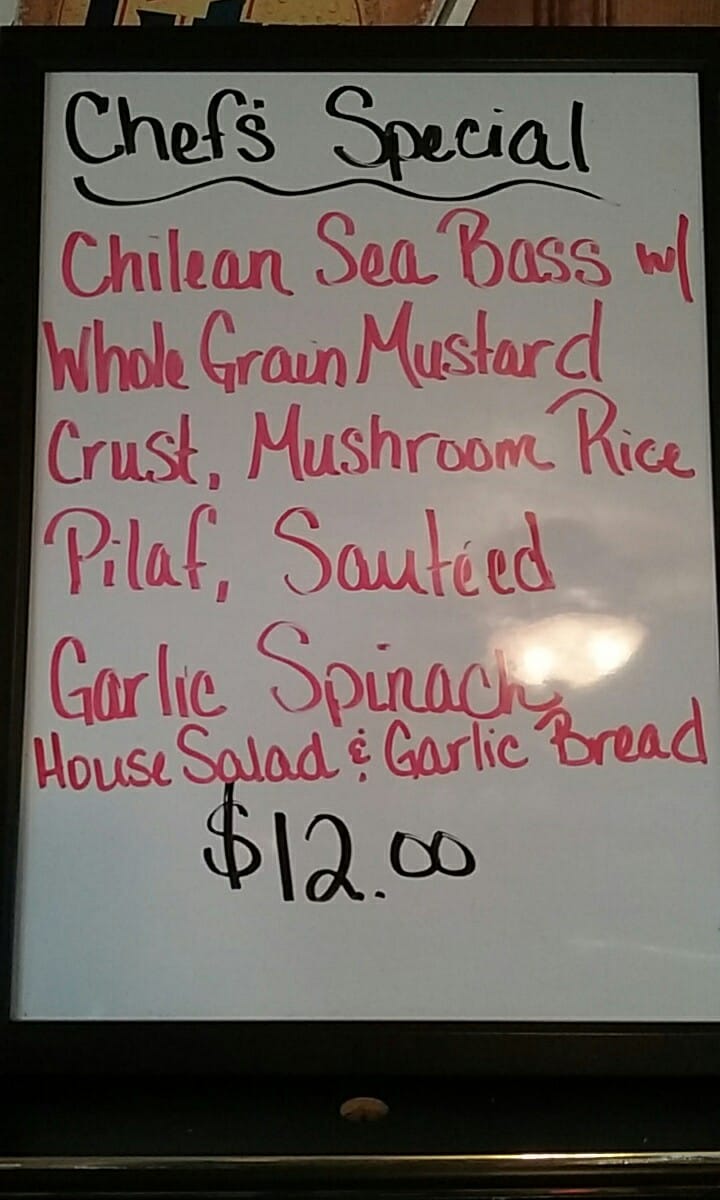 Chef's Special
Chilean Sea Bass w/
Whole Grain Mustard
Crust, Mushroom Rice
Pilaf, Sautéed
Garlic Spinach
House Salad & Garlic Bread
$12.00